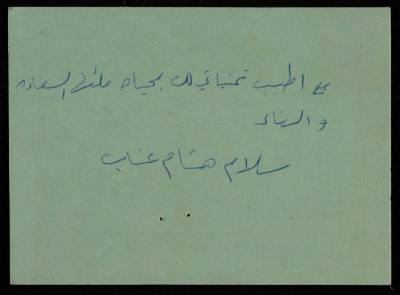 مع اطيب تمنياتي لك بحياه ملئها السعاده
و الهناء
سلام هشام عناب